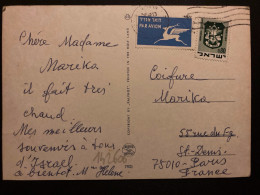 Chère Madame
Marika
il fait très
chaud
Mes meilleurs
souvenirs à tous
d'Israel
à bientôt. Mme Helene
PAR AVION
Coifure
Marika
58 rue du Fg
St-Denis
75010-Paris
France